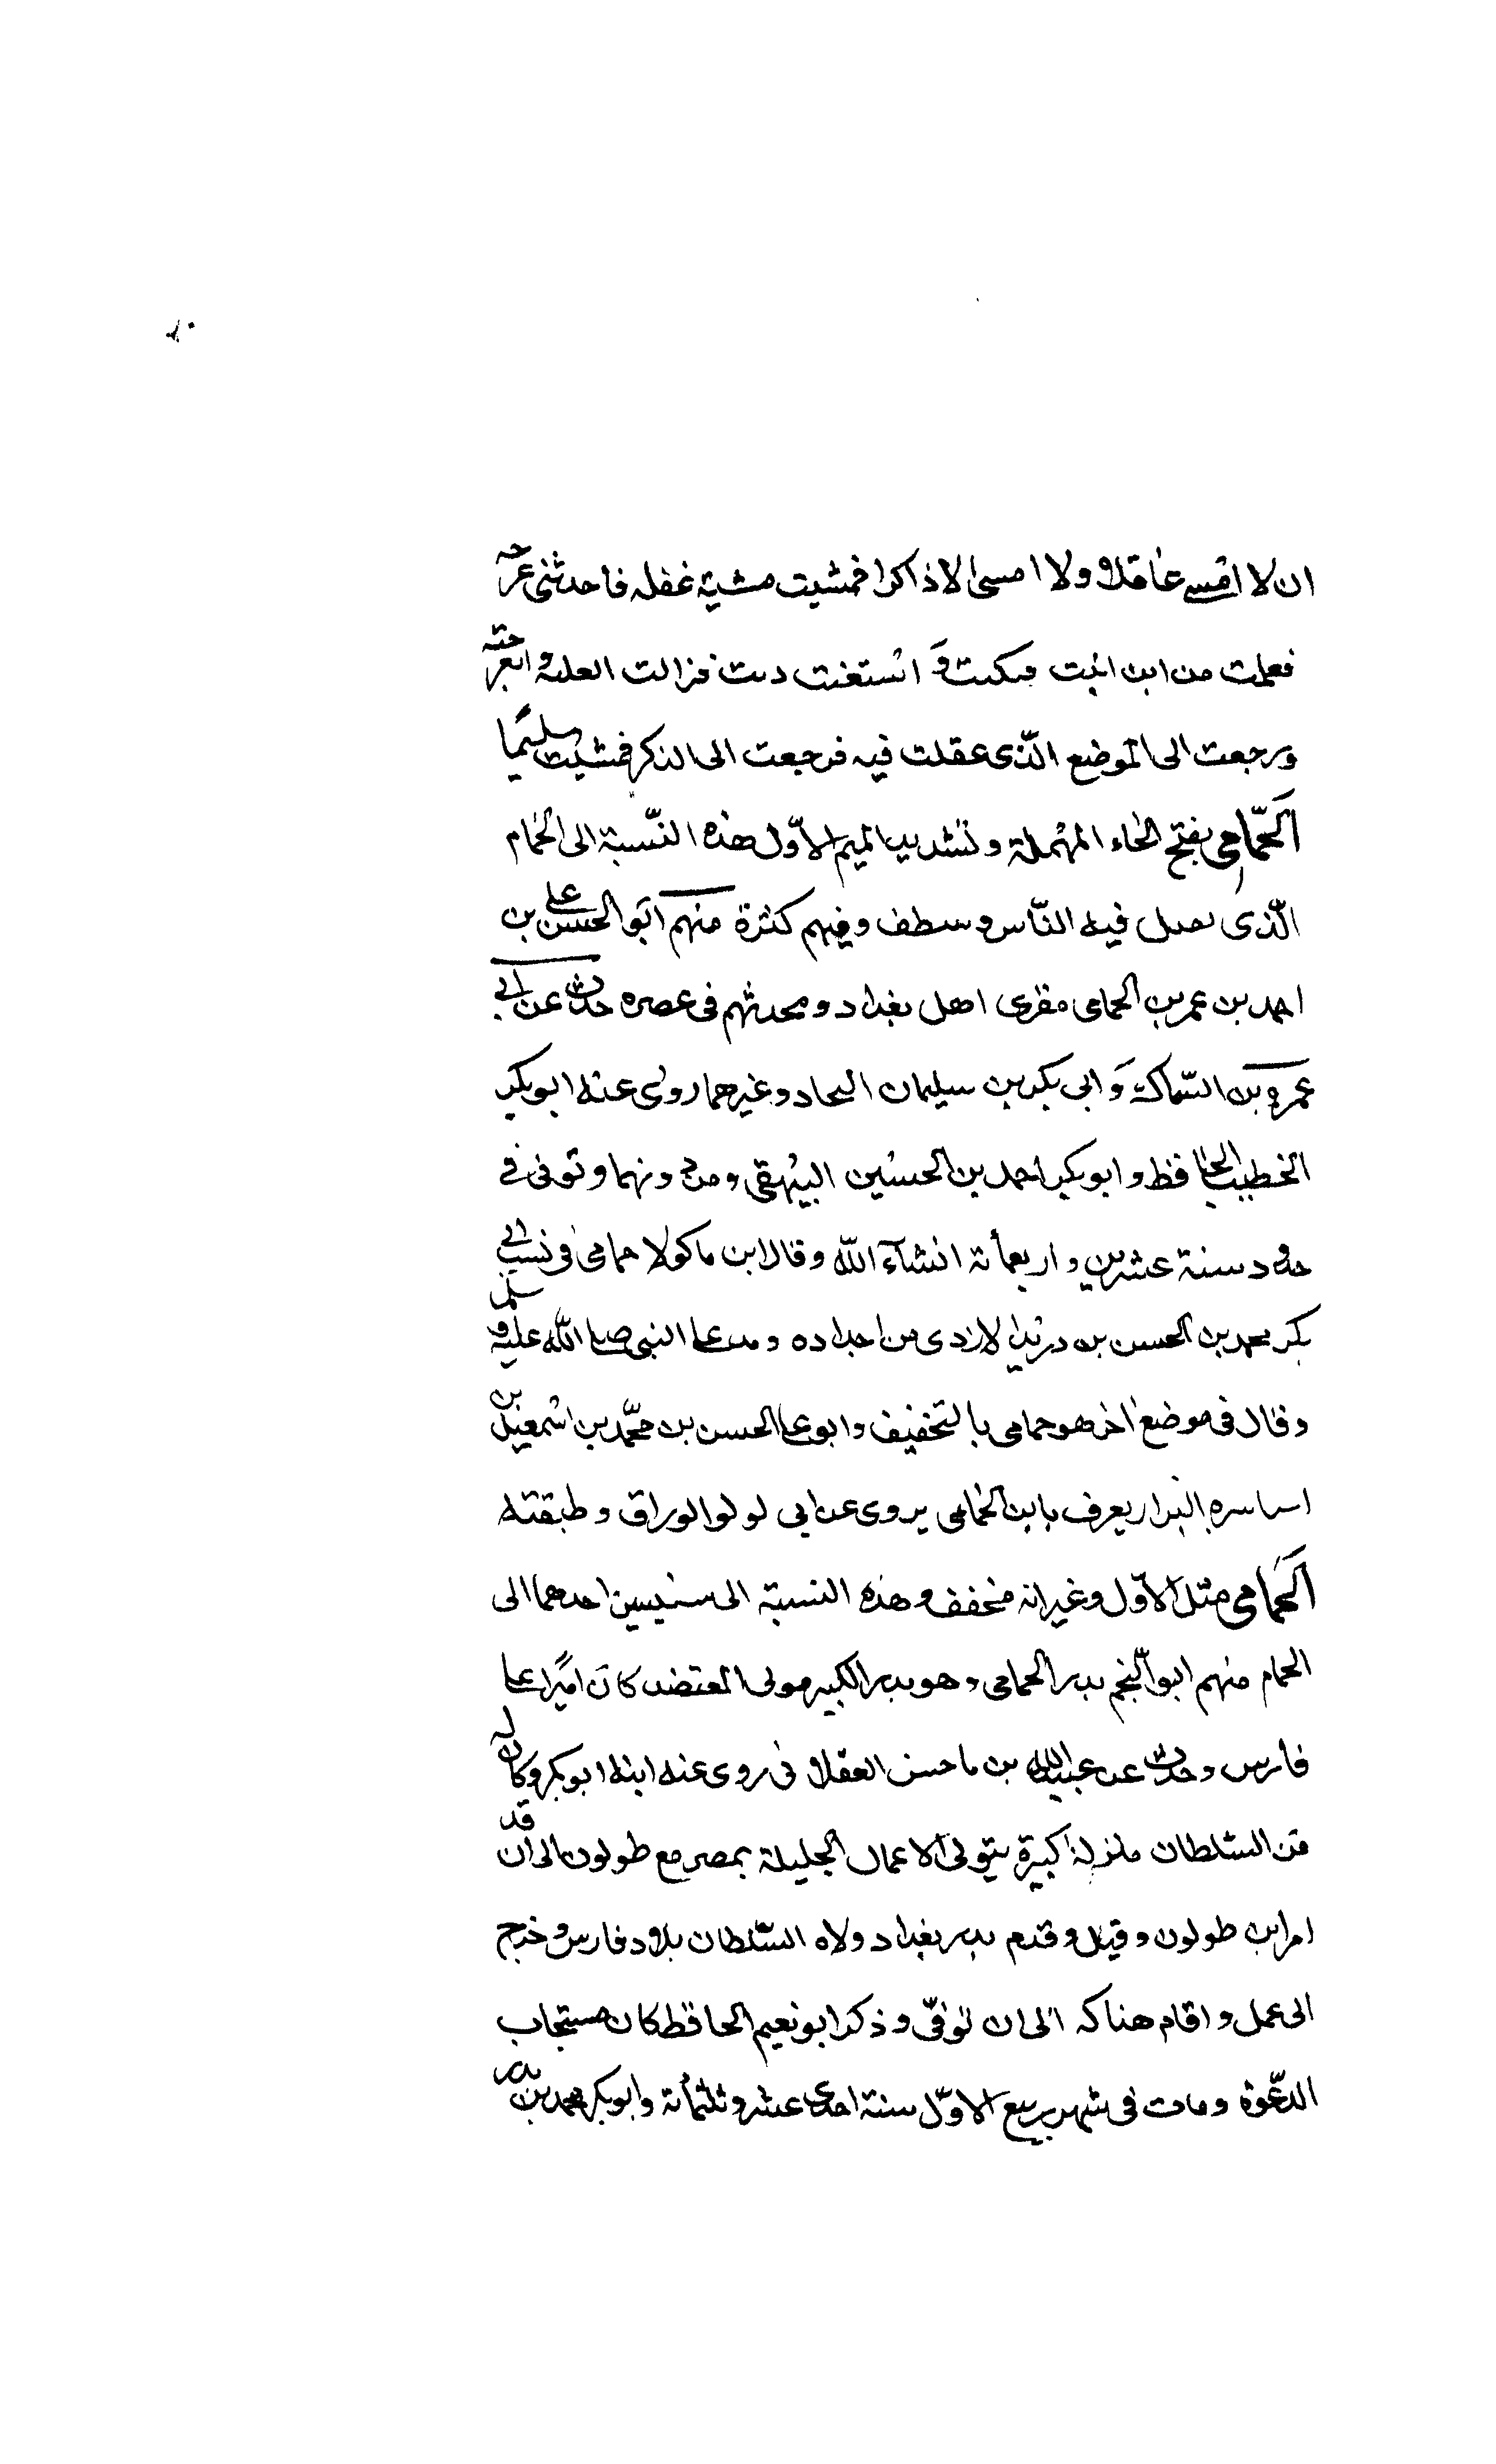 ان لا امسى غافلا ولا امسى الا ذاكرا فمشيت مشية غفله فاحدثنى عرجه
فعلمت من اين اتيت فبكيت و استغثت فزالت العله والعرجته
ورجعت الى الموضع الذى غفلت فيه فرجعت الى الذكر فمشيت سليما
الحمّامى بفتح الحاء المهملة وتشديد الميم الاوّل هذه النّسبة الى الحمام
الّذى فيه النّاس و وفيهم كثرة منهم ابو الحسن على بن
احمد بن عمر بن الحمامى مقرى اهل بغداد ومحدثهم فى عصره حدث عن ابى
عمرو بن السّماك و ابى بكر بن سليمان النجاد وغيرهما روى عنه ابو بكر
الخطيب الحافظ وابو بكر احمد بن الحسين البيهقى ومن دونهما وتوفى فى
حدود سنة عشرين واربعمأئة انشآء الله وقال ابن ماكولا حمامى فى نسب ابى
بكر محمد بن الحسن بن دريد الازدى من اجداده وفد على النبى صلى الله عليه وسلم
وقال فى موضع اخر هو حمامى بالتخفيف وابو على الحسن بن محمّد بن اسمعيل بن
البزار يعرف بابن الحمامى يروى عن ابى لولو الوراق وطبقته
الحمامى مثل الاوّل وغير انه مخفف وهذه النسبة الى احدهما الى
الحمام منهم ابو النجم بدر الحمامى وهو بدر الكبير مولى المعتضد كان اميرا على
فارس وحدث عن عبيد الله بن ماحسن العقلانى روى عنه ابنه ابو بكر وكان له
من السّلطان منزلة كبيرة يتولى الاعمال الجليلة بمصر مع طولون الى ان قد
امر ابن طولون وقيل وقدم بدر بغداد ولاه السّلطان بلاد فارس وخرج
الى عمل واقام هناكه الى ان توفّى وذكر ابو نعيم الحافظ كان مستجاب
الدعوة ومات فى شهر ربيع الاوّل سنة احدى عشر وثلثمأئة وابو بكر محمد بن بدر